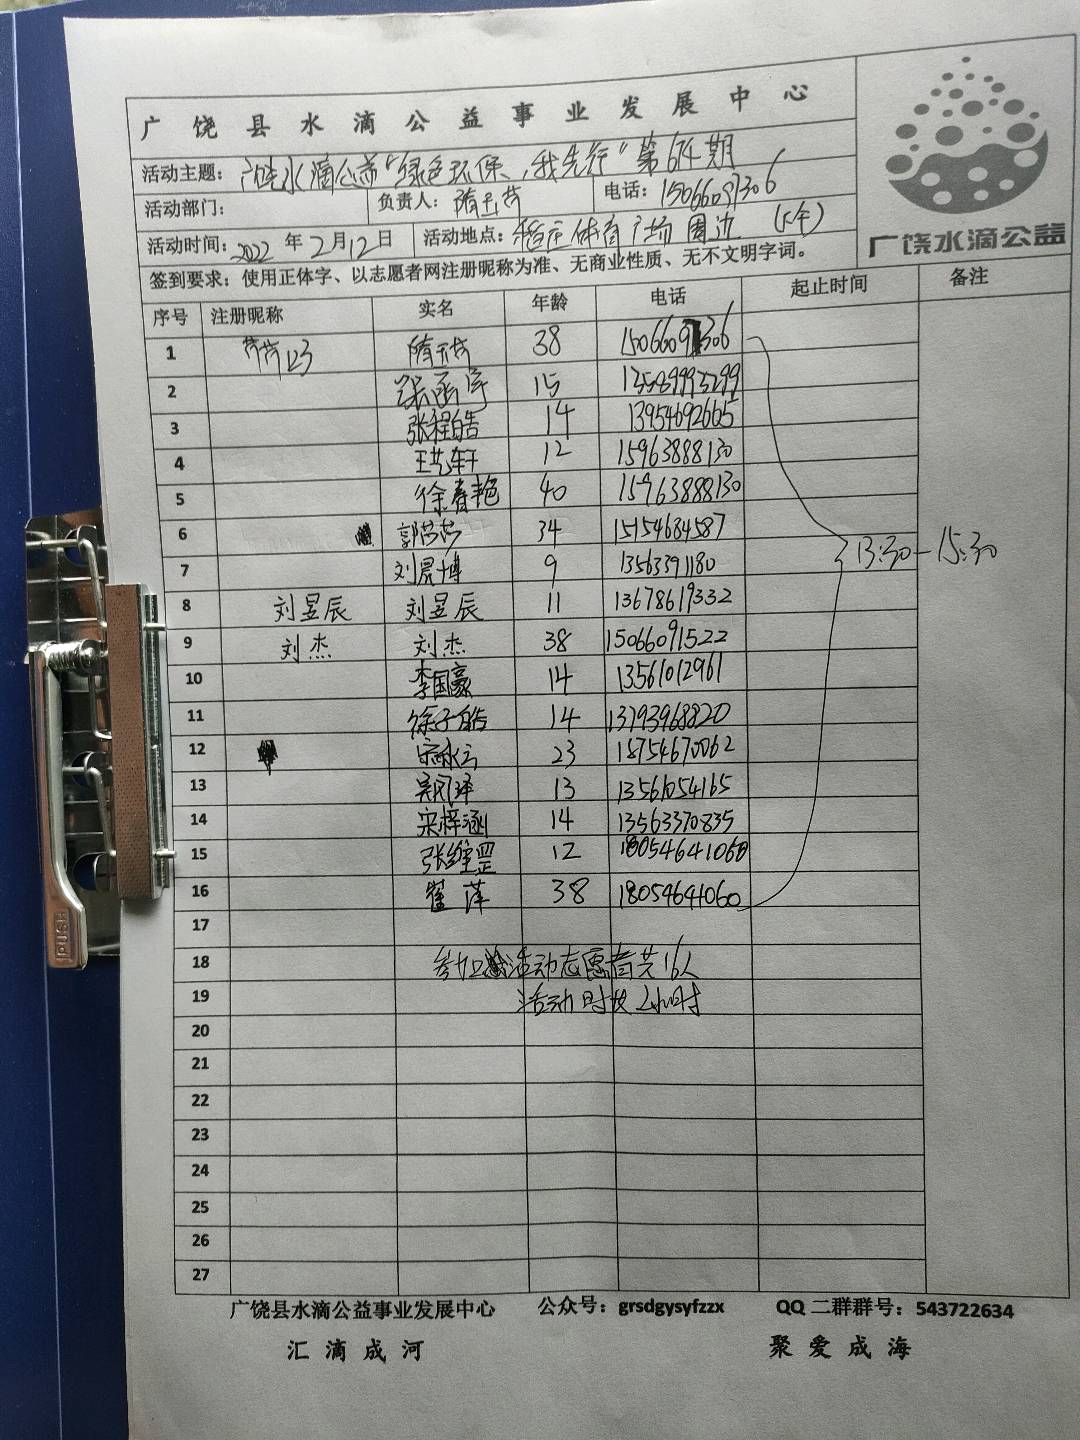 广饶县水滴公益事业发展中心
广饶水滴公益
活动主题：广饶水滴公益“绿色环保，我先行”第674期
活动部门： 负责人： 电话：15066091306
活动时间：2022年2月12日 活动地点：稻庄体育广场周边（下午）
签到要求：使用正体字、以志愿者网注册昵称为准、无商业性质、无不文明字词。
序号 注册昵称 实名 年龄 电话 起止时间 备注
1 38 1506609306
2 张函宇 15 13589993299
3 张程皓 14 13954692665
4 王艺轩 12 15963888130
5 徐春艳 40 15963888130
6 郭芬芬 34 15154634587
7 刘晨博 9 13563391180
8 刘昱辰 刘昱辰 11 13678619332
9 刘杰 刘杰 38 15066091522
10 李国豪 14 13561012961
11 徐子皓 14 13793968820
12 宋咏云 23 18754670062
13 吴风泽 13 13561054165
14 宋梓涵 14 13563370835
15 张维罡 12 18054641060
16 崔萍 38 18054641060
13:30-15:30
17
18 参加活动志愿者共16人
19 活动时长2小时
20
21
22
23
24
25
26
27
广饶县水滴公益事业发展中心 公众号：grsdgysyfzzx QQ二群群号：543722634
汇滴成河 聚爱成海
PUSH